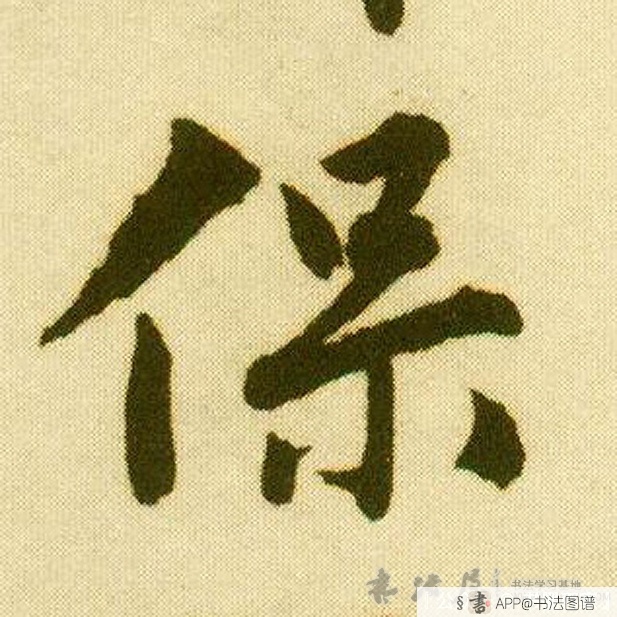 保
书法学习基地
§書 APP@书法图谱